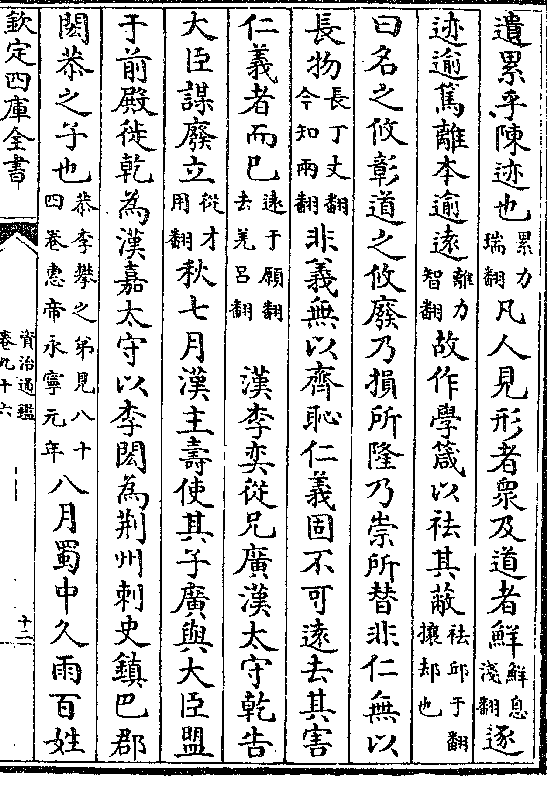 遺累乎陳迹也累力瑞翻凡人見形者衆及道者鮮鮮息淺翻逐
迹逾篤離本逾遠離力智翻故作學箴以祛其蔽祛邱于翻攘却也
曰名之攸彰道之攸廢乃損所隆乃崇所替非仁無以
長物長丁丈翻今知兩翻非義無以齊恥仁義固不可遠去其害
仁義者而已遠于願翻去羌呂翻 漢李奕從兄廣漢太守乾告
大臣謀廢立從才用翻秋七月漢主壽使其子廣與大臣盟
于前殿徙乾為漢嘉太守以李閎為荆州刺史鎮巴郡
閎恭之子也恭李攀之弟見八十四卷惠帝永寧元年八月蜀中久雨百姓
欽定四庫全書
資治通鑑
卷九十六
十二